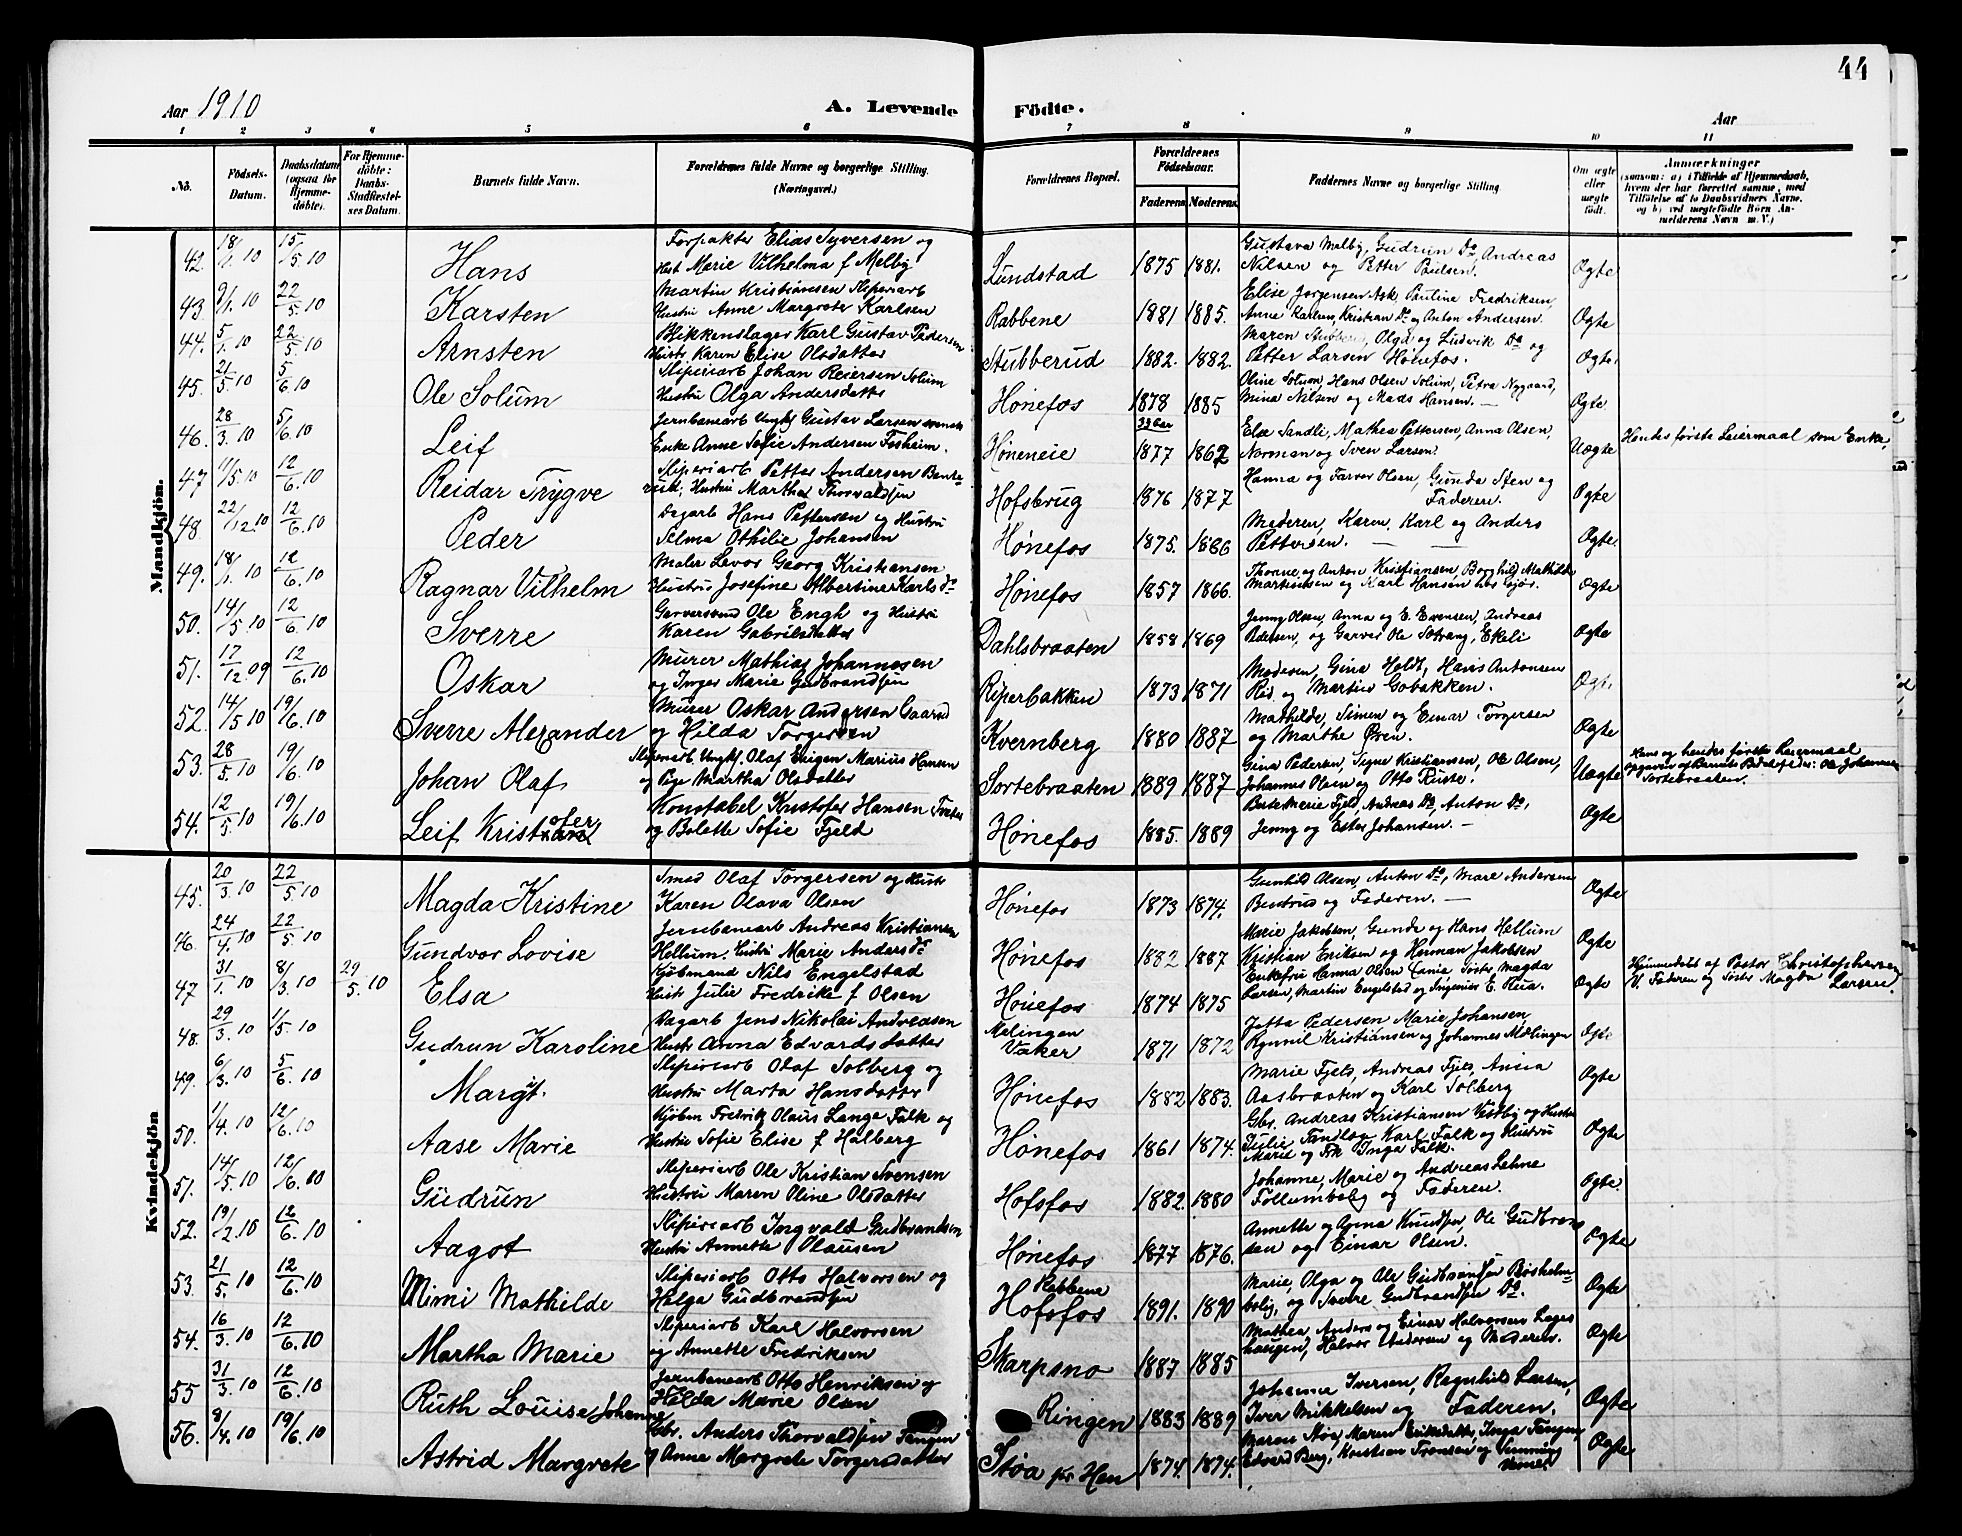 44
Aar 1910 A. Levende Födte. Aar
1 2 3 4 5 6 7 8 9 10 11
No. Födsels-Datum. Daabsdatum (ogsaa for Hjemmedöbte). For Hjemmedöbte: Daabs-Stadfæstelses Datum. Barnets fulde Navn. Forældrenes fulde Navne og borgerlige Stilling. (Næringsvei.) Forældrenes Bopæl. Forældrenes Födselsaar. Faderens Moderens Faddernes Navne og borgerlige Stilling. Om ægte eller uægte födt. Anmærkninger (saasom: a) i Tilfælde af Hjemmedaab, hvem der har forrettet samme, med Tilföielse af to Daabsvidners Navne, og b) ved uægtefödte Börn Anmelderens Navn m. V.)
Mandkjön.
42. 18/1.10 15/5.10 Hans Forpakter Elias Syversen og
Hust Marie Vilhelma f Melby Lundstad 1875 1881. Gustava Melby, Gudrun Do, Andreas
Nilsen og Petter Paulsen. Ogte
43. 9/1.10 22/5.10 Karsten Martin Kristiansen Sliperiarb
Hustru Anne Margrete Karlsen Rabbene 1881 1885. Elise Jørgensen Ask, Pauline Fredriksen,
Anne Karlsen, Kristian Do og Anton Andersen. Ogte
44. 5/1.10 22/5.10 Arnsten Blikkenslager Karl Gustav Pedersen
Hustr. Karen Elise Olsdatter Stubberud 1882. 1882. Maren Stubberud, Olga og Ludvik Do og
Petter Larsen Hønefos. Ogte.
45. 21/5.10 5/6.10 Ole Solum Sliperiarb Johan Reiersen Solum
Hustru Olga Andersdatter Hønefos 1878 1885 Oline Solum, Hans Olsen Solum, Petra Nygaard,
Mina Nilsen og Mads Hansen. Ogte
46. 28/3.10 5/6.10 Leif Jernbanearb Ungkf Gustav Larsen svensk
Enke Anne Sofie Andersen Fosheim. Høneneie 1877 1862 Else Sandli, Mathea Pettersen, Anna Olsen,
Norman og Sven Larsen. Uægte Hendes første Leiermaal som Enke.
47 11/5.10 12/6.10 Reidar Trygve Sliperiarb Petter Andersen Bente-
rud, Hustru Martha Thorvaldsen Hofsbrug 1876 1877 Hanna og Olsen, Gunda Steen og
Faderen. Ogte
48. 22/12.10 12/6.10 Peder Dagarb Hans Pettersen og Hustru
Selma Othilie Johansen Hønefos 1875. 1866 Moderen, Karen, Karl og Anders
Pettersen. Ogte.
49. 18/1.10 12/6.10 Ragnar Vilhelm Maler Levor Georg Kristiansen
Hustru Josefine Albertine Karlsdr Hønefos 1857 1866. Thonne og Anton Kristiansen, Borghild Mathilde
Martinsen og Karl Hansen hos Gjør. Ogte
50. 14/5.10 12/6.10 Sverre Garversvend Ole Engh og Hustru
Karen Gabrielsdatter Dahlsbraaten 1858 1869 Jenny Olsen, Anna og E. Evensen, Andreas
Pedersen, og Garver Ole Solvang, Ekeli Ogte
51. 17/12.09 12/6.10 Oskar Murer Mathias Johannesen
og Inger Marie Gudbrandsen Riperbakken 1873 1871 Moderen, Gina Holdt, Hans Antonsen
Rød og Martin Gobakken. Ogte
52 14/5.10 19/6.10 Sverre Alexander Murer Oskar Andersen Gaarud
og Hilda Torgersen Kvernberg 1880 1887 Mathilde, Simen og Einar Torgersen
og Marthe Øren. Ogte
53. 28/5.10 19/6.10 Johan Olaf Sliperiarb. Ungkf. Olaf Eugen Marius Hansen
og Pige Martha Olsdatter Sortebraaten 1889 1887 Gina Pedersen, Signe Kristiansen, Ole Olsen,
Johannes Olsen og Otto Ruste. Uægte Hans og hendes første Leiermaal
opgaven af Barnets Bedstefader: Ole Johannesen
Sortebraaten.
54. 12/5.10 19/6.10 Leif Kristofer Konstabel Kristofer Hansen
og Bolette Sofie Fjeld Hønefos 1885. 1889 Berte Marie Fjeld, Andreas Do, Anton Do,
Jenny og Ester Johansen. Ogte
Kvindekjön
45. 20/3.10 22/5.10 Magda Kristine Smed Olaf Torgersen og Hustr
Karen Olava Olsen Hønefos 1873 1874. Gunhild Olsen, Anton Do, Mare Andersen
Bentrud og Faderen. Ogte
46. 24/4.10 22/5.10 Gundvor Lovise Jernbanearb Andreas Kristiansen
Hellum. Hustru Marie Andersdr Hønefos 1882 1887 Marie Jakobsen, Gunda og Hans Hellum
Kristian Eriksen og Herman Jakobsen Ogte
47 31/1.10 8/3.10 29/5.10 Elsa Kjøbmand Nils Engelstad
Hustr Julie Fredrike f Olsen Hønefos 1874 1875 Enkefru Hanna Olsen, Søster Magda
Larsen, Martin Engelstad og Ingeniør E. Rua. Ogte Hjemmedøbt af Pastor Christophersen
V. Faderen og Søster Magda Larsen.
48. 29/3.10 1/5.10 Gudrun Karoline Dagarb Jens Nikolai Andreasen
Hustr Anna Edvardsdatter Mælingen
Vaker 1871 1872 Jette Pedersen Marie Johansen,
Kristiansen og Johannes Mælingen Ogte
49. 6/3.10 5/6.10 Margit. Sliperiarb Olaf Solberg og
Hustru Marta Hansdatter Hønefos 1882 1883. Marie Fjeld, Andreas Fjeld, Anna
Aasbraaten og Karl Solberg Ogte
50. 1/4.10 12/6.10 Aase Marie Kjøbm Fredrik Olaus Lange Falk og
Hustru Sofie Elise f Halberg Hønefos 1861 1874. Gbr. Andreas Kristiansen Vestby og Hustru
Julie Tandløs, Karl Falk og Hustru
Marie og Frk Inga Falk. Ogte
51. 14/5.10 12/6.10 Gudrun Sliperiarb Ole Kristian Svensen
Hustru Maren Oline Olsdatter Hofsfos 1882. 1880 Johanne, Marie og Andreas Lehne
Follumbolig og Faderen. Ogte.
52. 19/2.10 12/6.10 Aagot Sliperiarb Ingvald Gudbrandsen
Hustru Annette Olausen Hønefos 1877 1876. Annette og Anna Knudsen, Ole Gudbrand-
sen og Einar Olsen. Ogte
53. 21/5.10 12/6.10 Mimi Mathilde Sliperiarb Otto Halvorsen og
Helga Gudbrandsen Rabbene
Hofsfos 1891. 1890 Marie, Olga og Ole Gudbrandsen Busholm-
bolig, og Sverre Gudbrandsen Do. Ogte
54. 16/3.10 12/6.10 Martha Marie Sliperiarb Karl Halvorsen
og Annette Fredriksen Skarpsno 1887 1885 Mathea, Anders og Einar Halvorsen Lages
haugen, Halvor Andersen og Moderen. Ogte
55 31/3.10 12/6.10 Ruth Louise Johanne Jernbanearb Otto Henriksen og
Hilda Marie Olsen Ringen 1883 1889 Johanna Iversen, Ragnhild Larsen,
Iver Mikkelsen og Faderen. Ogte
56. 8/4.10 19/6.10 Astrid Margrete Gbr. Anders Thorvaldsen Tangen
og Anne Margrete Torgersdatter Støa pr Hen 1874. 1874. Maren Støa, Maren Eriksdatter, Inga Tangen,
Edvard Berg, Kristian Tronsen og Ogte